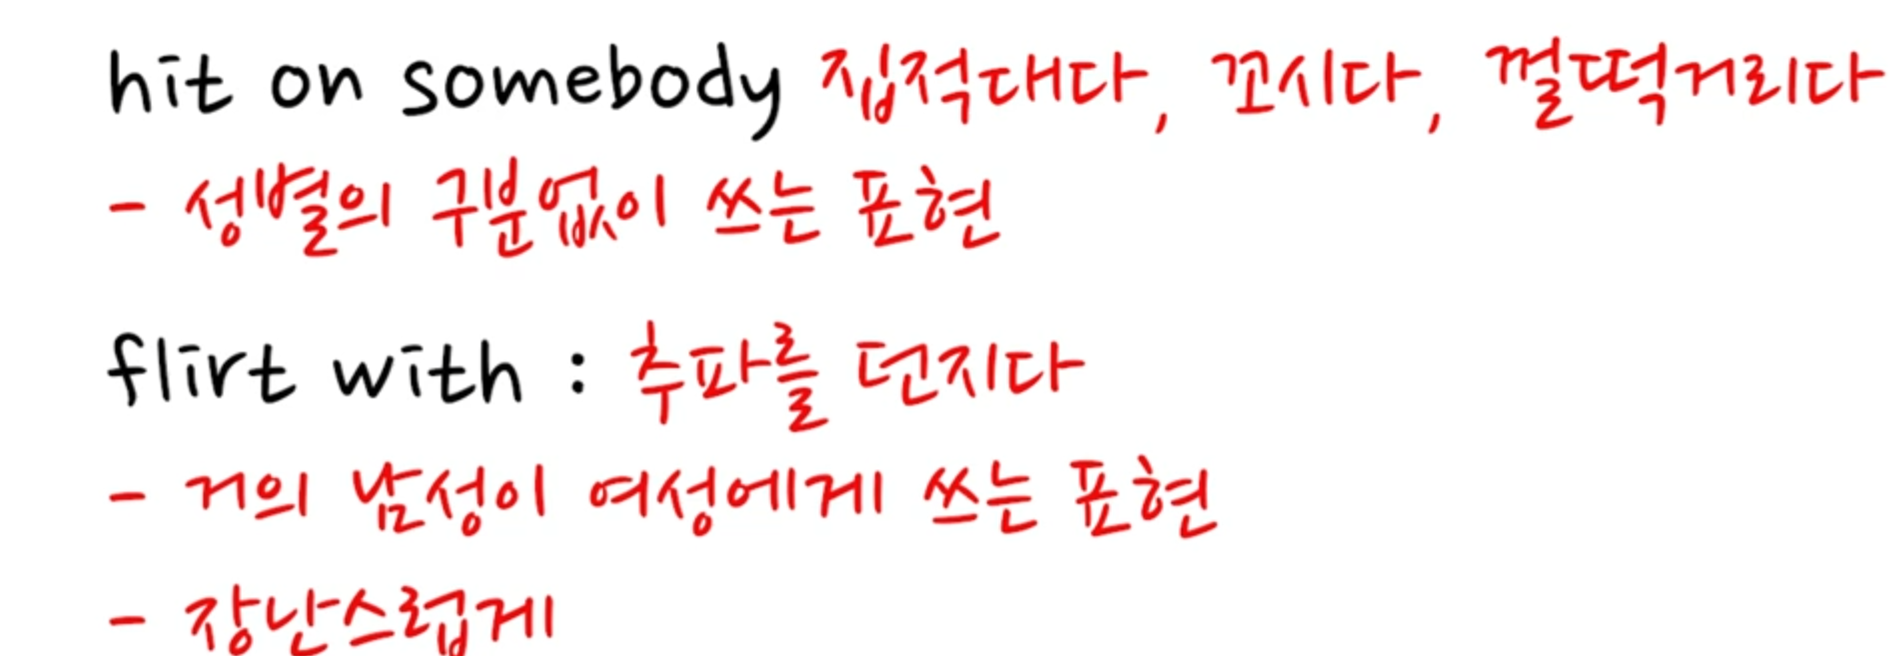 hit on somebody 집적대다, 꼬시다, 껄떡거리다
- 성별의 구분없이 쓰는 표현
flirt with : 추파를 던지다
- 거의 남성이 여성에게 쓰는 표현
- 장난스럽게